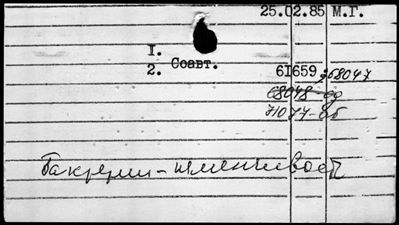 25.02.85 М.Г.
I.
2. Соавт.
61659, 68047
68048-дд
71077-дб
Бактерии-изменчивость